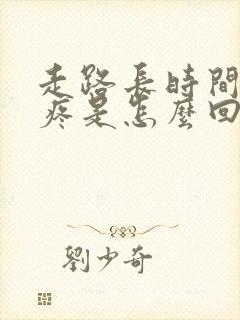 走路長時間
疼是怎麼回
劉少奇